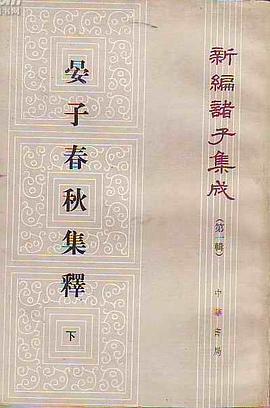 新編諸子集成
(第一輯)
中華書局
晏子春秋集釋
下